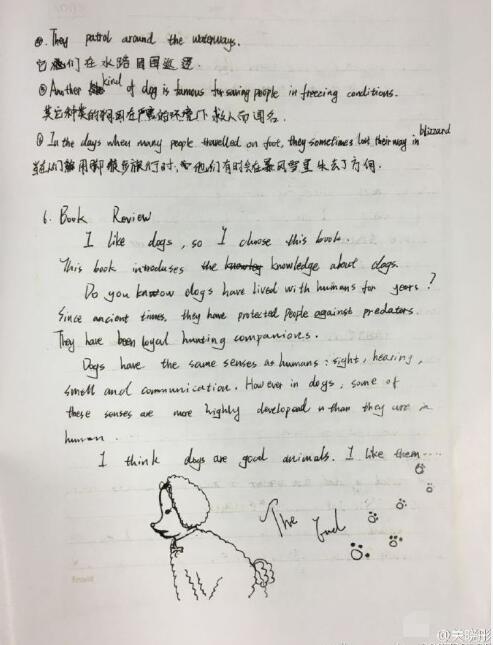 ④. They patrol around the waterways.
它们在水路周围巡逻
⑤ Another kind of dog is famous for saving people in freezing conditions.
其它种类的狗因在严寒的环境下救人而闻名.
⑥ In the days when many people travelled on foot, they sometimes lost their way in blizzard
当人们用脚步旅行时, 他们有时会在暴风雪里失去了方向.
6. Book Review
I like dogs, so I chose this book.
This book introduses the knowledge about dogs.
Do you know dogs have lived with humans for years?
Since ancient times, they have protected people against predators.
They have been loyal hunting companions.
Dogs have the same senses as humans: sight, hearing,
smell and communication. However in dogs, some of
these senses are more highly developed than they are in
human.
I think dogs are good animals. I like them....
The End
@关晓彤